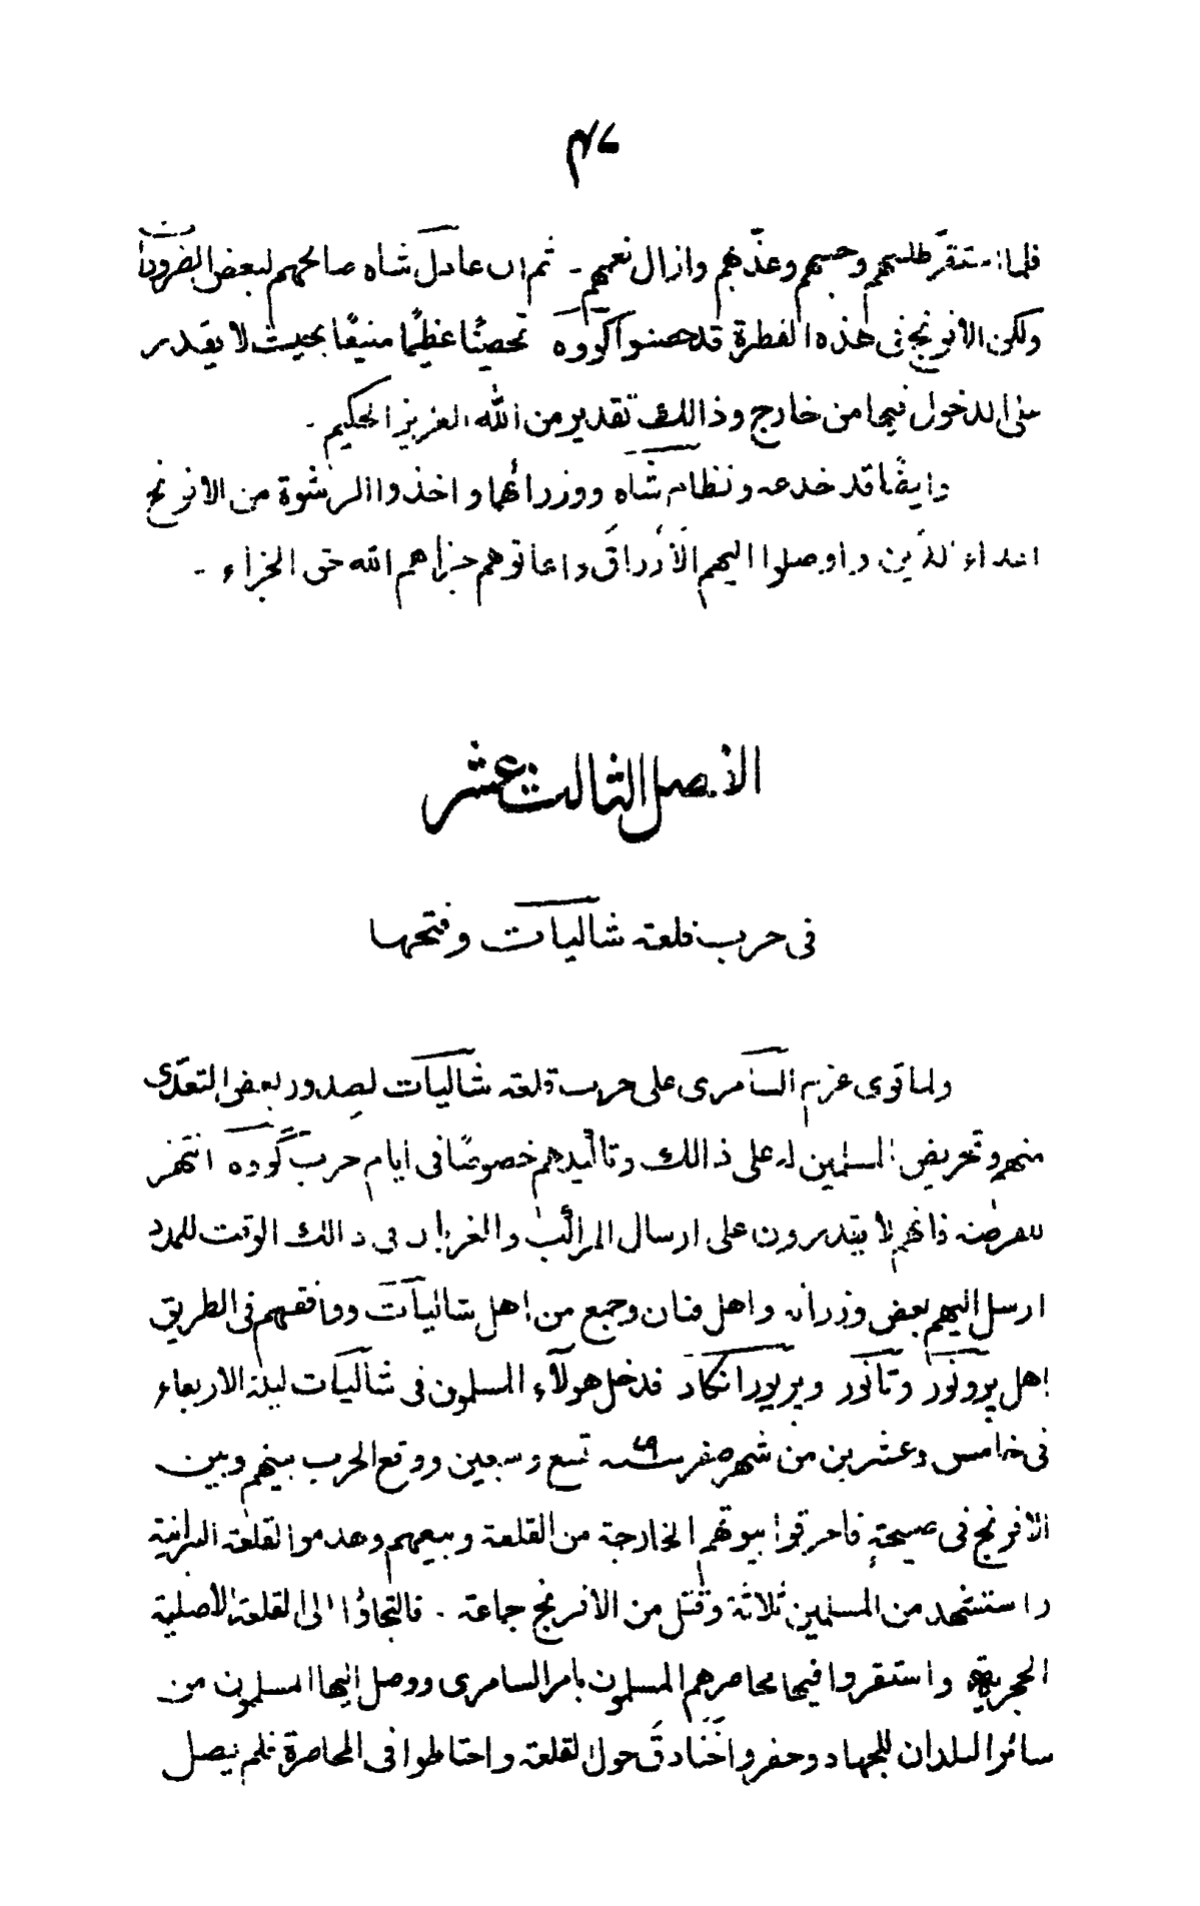 ٤٧
فلما استقر طلبهم وحبسهم وعذّبهم وازال نعمهم - ثم ان عادل شاه صالحهم لبعض الضرورات
ولكن الافرنج فى هذه الفطرة قد حصنوا كووه تحصينًا عظيمًا منيعًا بحيث لا يقدر
على الدخول فيها من خارج وذالك تقدير من الله العزيز الحكيم -
وايضًا قد خدعه ونظام شاه ووزرائهما واخذوا الرشوة من الافرنج
اعداء الدين واوصلوا اليهم الأرزاق واعانوهم جزاهم الله حق الجزاء -
الفصل الثالث عشر
فى حرب قلعة شاليات وفتحها
ولما قوى عزم السامرى على حرب قلعة شاليات لصدور بعض التعدّى
منهم وتحريض المسلمين له على ذالك وتاليدهم خصوصًا فى ايام حرب كووه انتهز
الفرصة فانهم لا يقدرون على ارسال المراكب والغربان فى ذالك الوقت للمدد
ارسل اليهم بعض وزرائه واهل فنان وجمع من اهل شاليات ووافقهم فى الطريق
اهل پرونور وتانور وپرپورانكاد فدخل هولاء المسلمون فى شاليات ليلة الاربعاء
فى خامس وعشرين من شهر صفر سنة ٧٩ تسع وسبعين ووقع الحرب بينهم وبين
الافرنج فى صبيحته فاحرقوا بيوتهم الخارجة من القلعة وبيعهم وهدموا القلعة البرانية
واستشهد من المسلمين ثلاثة وقتل من الافرنج جماعة - فالتجاؤا الى القلعة الاصلية
الحجرية واستقروا فيها محاصرهم المسلمون بامر السامرى ووصل اليها المسلمون من
سائر البلدان للجهاد وحفروا خنادق حول القلعة واحتاطوا فى المحاصرة فلم يصل